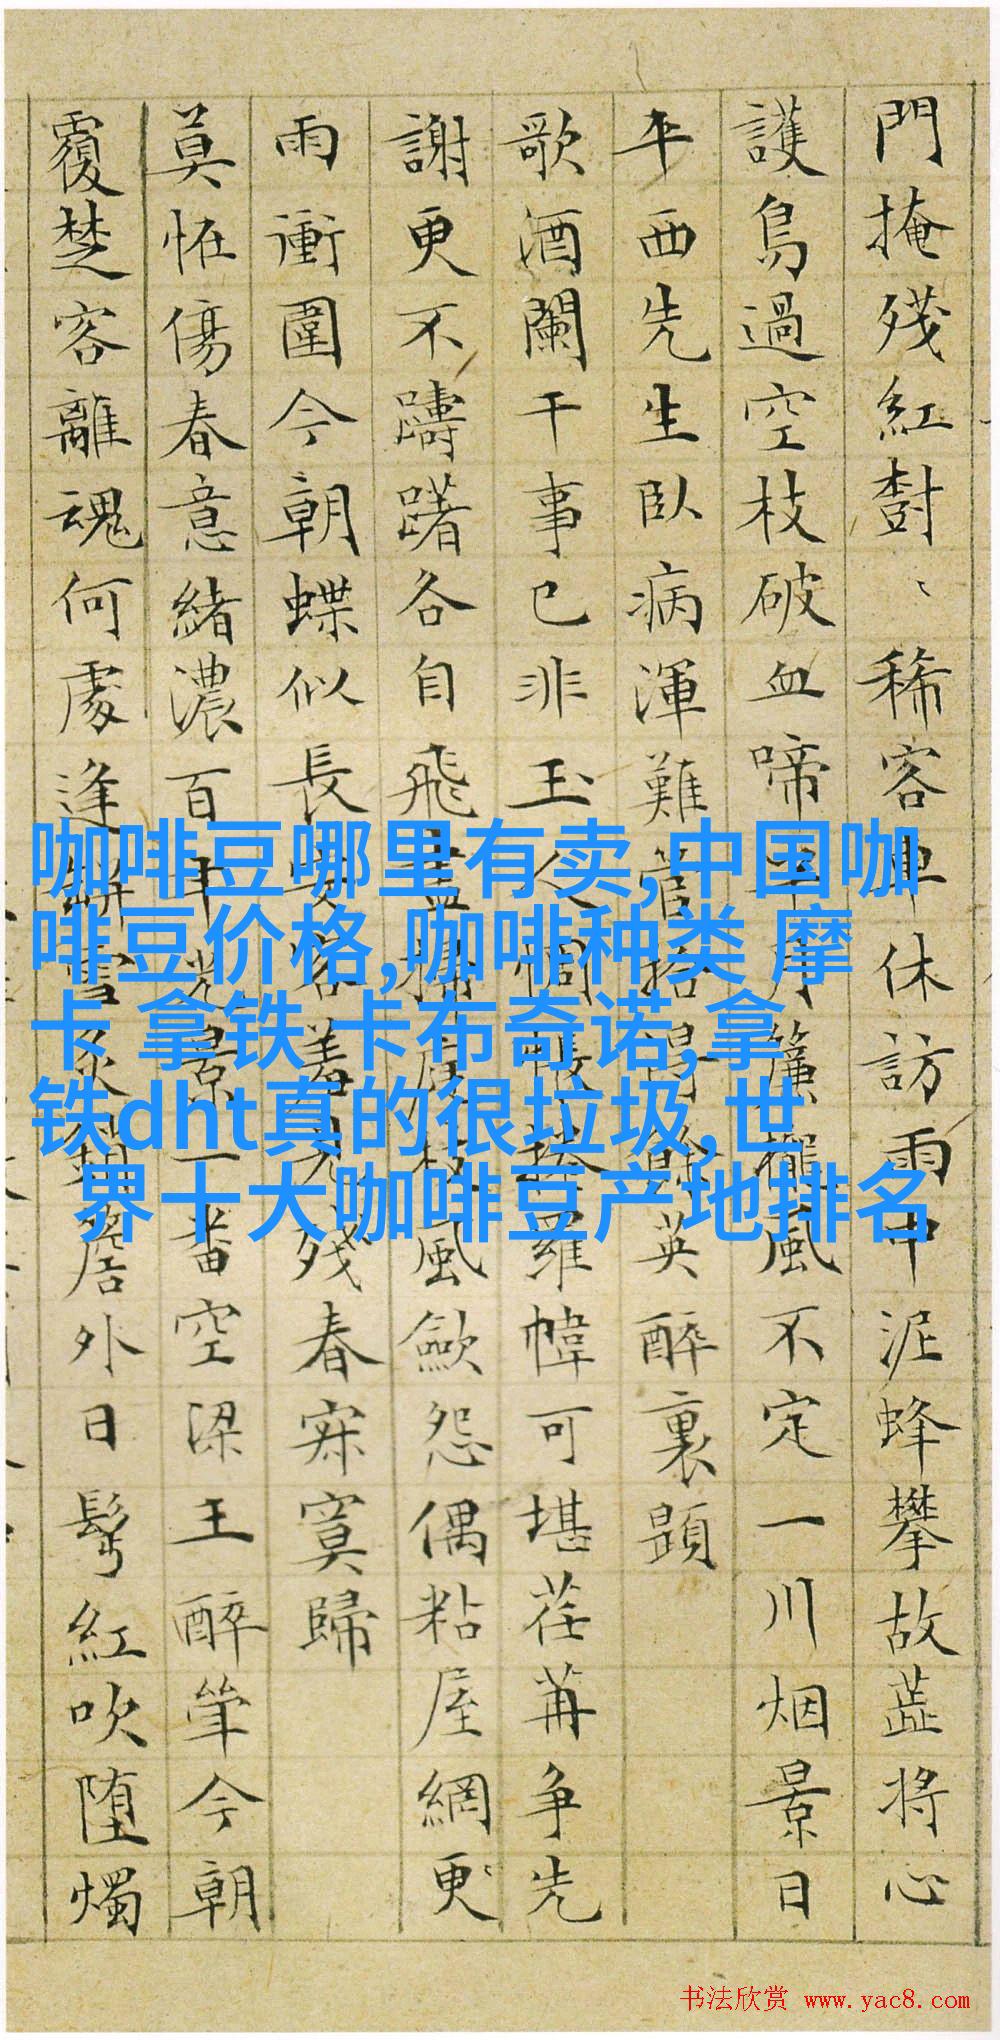 門掩殘紅樹〻稀客車休訪雨中泥蜂攀故蕋将心
護鳥過空枝破血啼半戶簾櫳風不定一川烟景日
平西先生臥病渾難管拾得餘英醉裏題
歌酒闌干事已非玉人惆悵捲羅幃可堪荏苒争先
謝更不躊躇各自飛盡掃庭枝風歛怨偶粘屋網更
雨衝圍今朝蝶似長安客羞見残春寂寞歸
莫恠傷春意緒濃百年光景一番空梁王醉筆今朝
覆楚客離魂何處逢解雪詹外日髩紅吹堕燭
咖啡豆哪里有卖,中国咖
啡豆价格,咖啡种类 摩
卡 拿铁 卡布奇诺,拿
铁dht真的很垃圾,世
界十大咖啡豆产地排名
书法欣赏 www.yac8.com